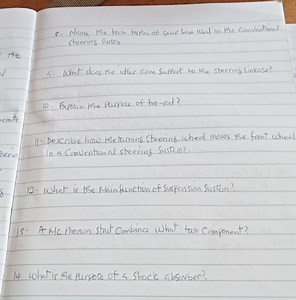 8. Name the two types of gear box used in the Conventional
steering system
9. What does the idler arm support to the steering linkage?
10. Explain the Purpose of tie-rod?
11- Describe how the turning Steering wheel moves the front wheel
in a Conventional steering Sustim?
12- What is the Main function of Suspension Sustim?
13- A Mc Pherson Strut Combines What two Component?
14 What is the Purpose of a Shock absorber?
the